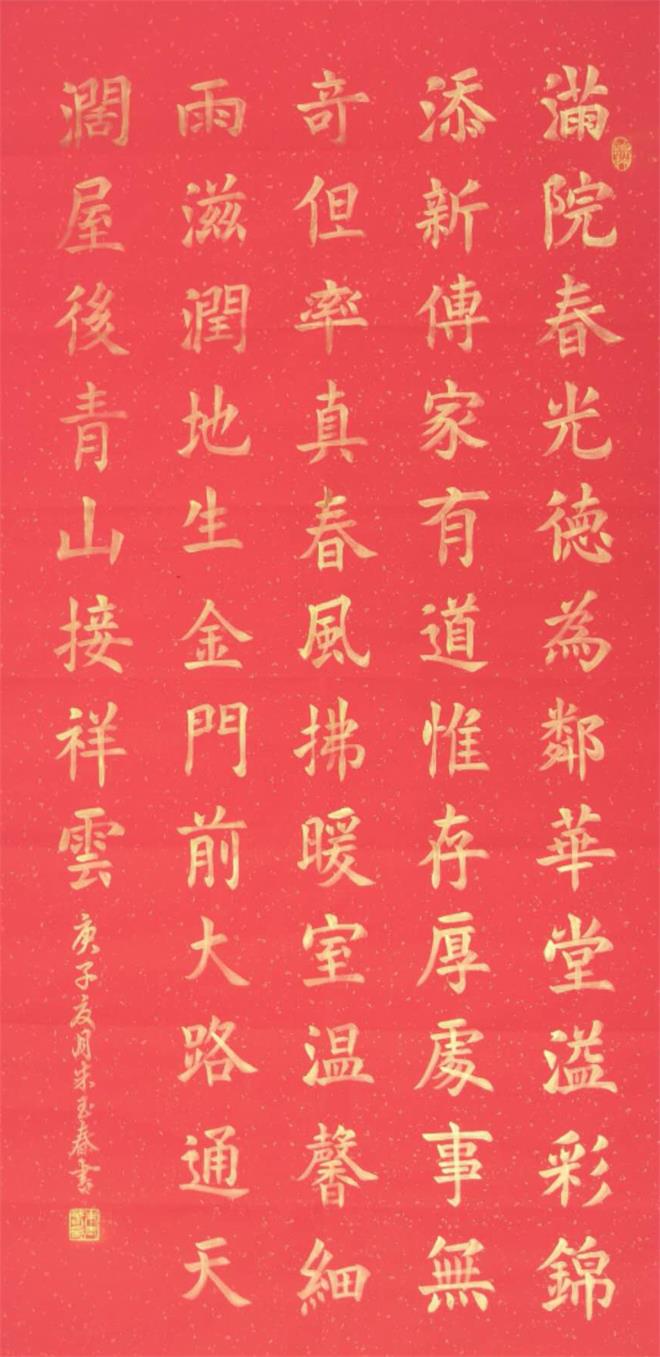 滿院春光德為鄰華堂溢彩錦
添新傳家有道惟存厚處事無
奇但率真春風拂暖室温馨細
雨滋潤地生金門前大路通天
濶屋後青山接祥雲
庚子友月朱玉春書